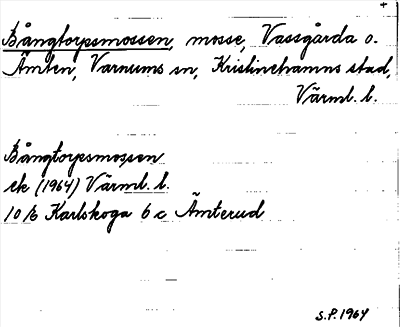 +
Bångtorpsmossen, mosse, Vassgårda o.
Ämten, Varnums sn, Kristinehamns stad,
Värml. l.
Bångtorpsmossen
ek (1964) Värml. l.
10 E Karlskoga 6 c Ämterud
S.P. 1964